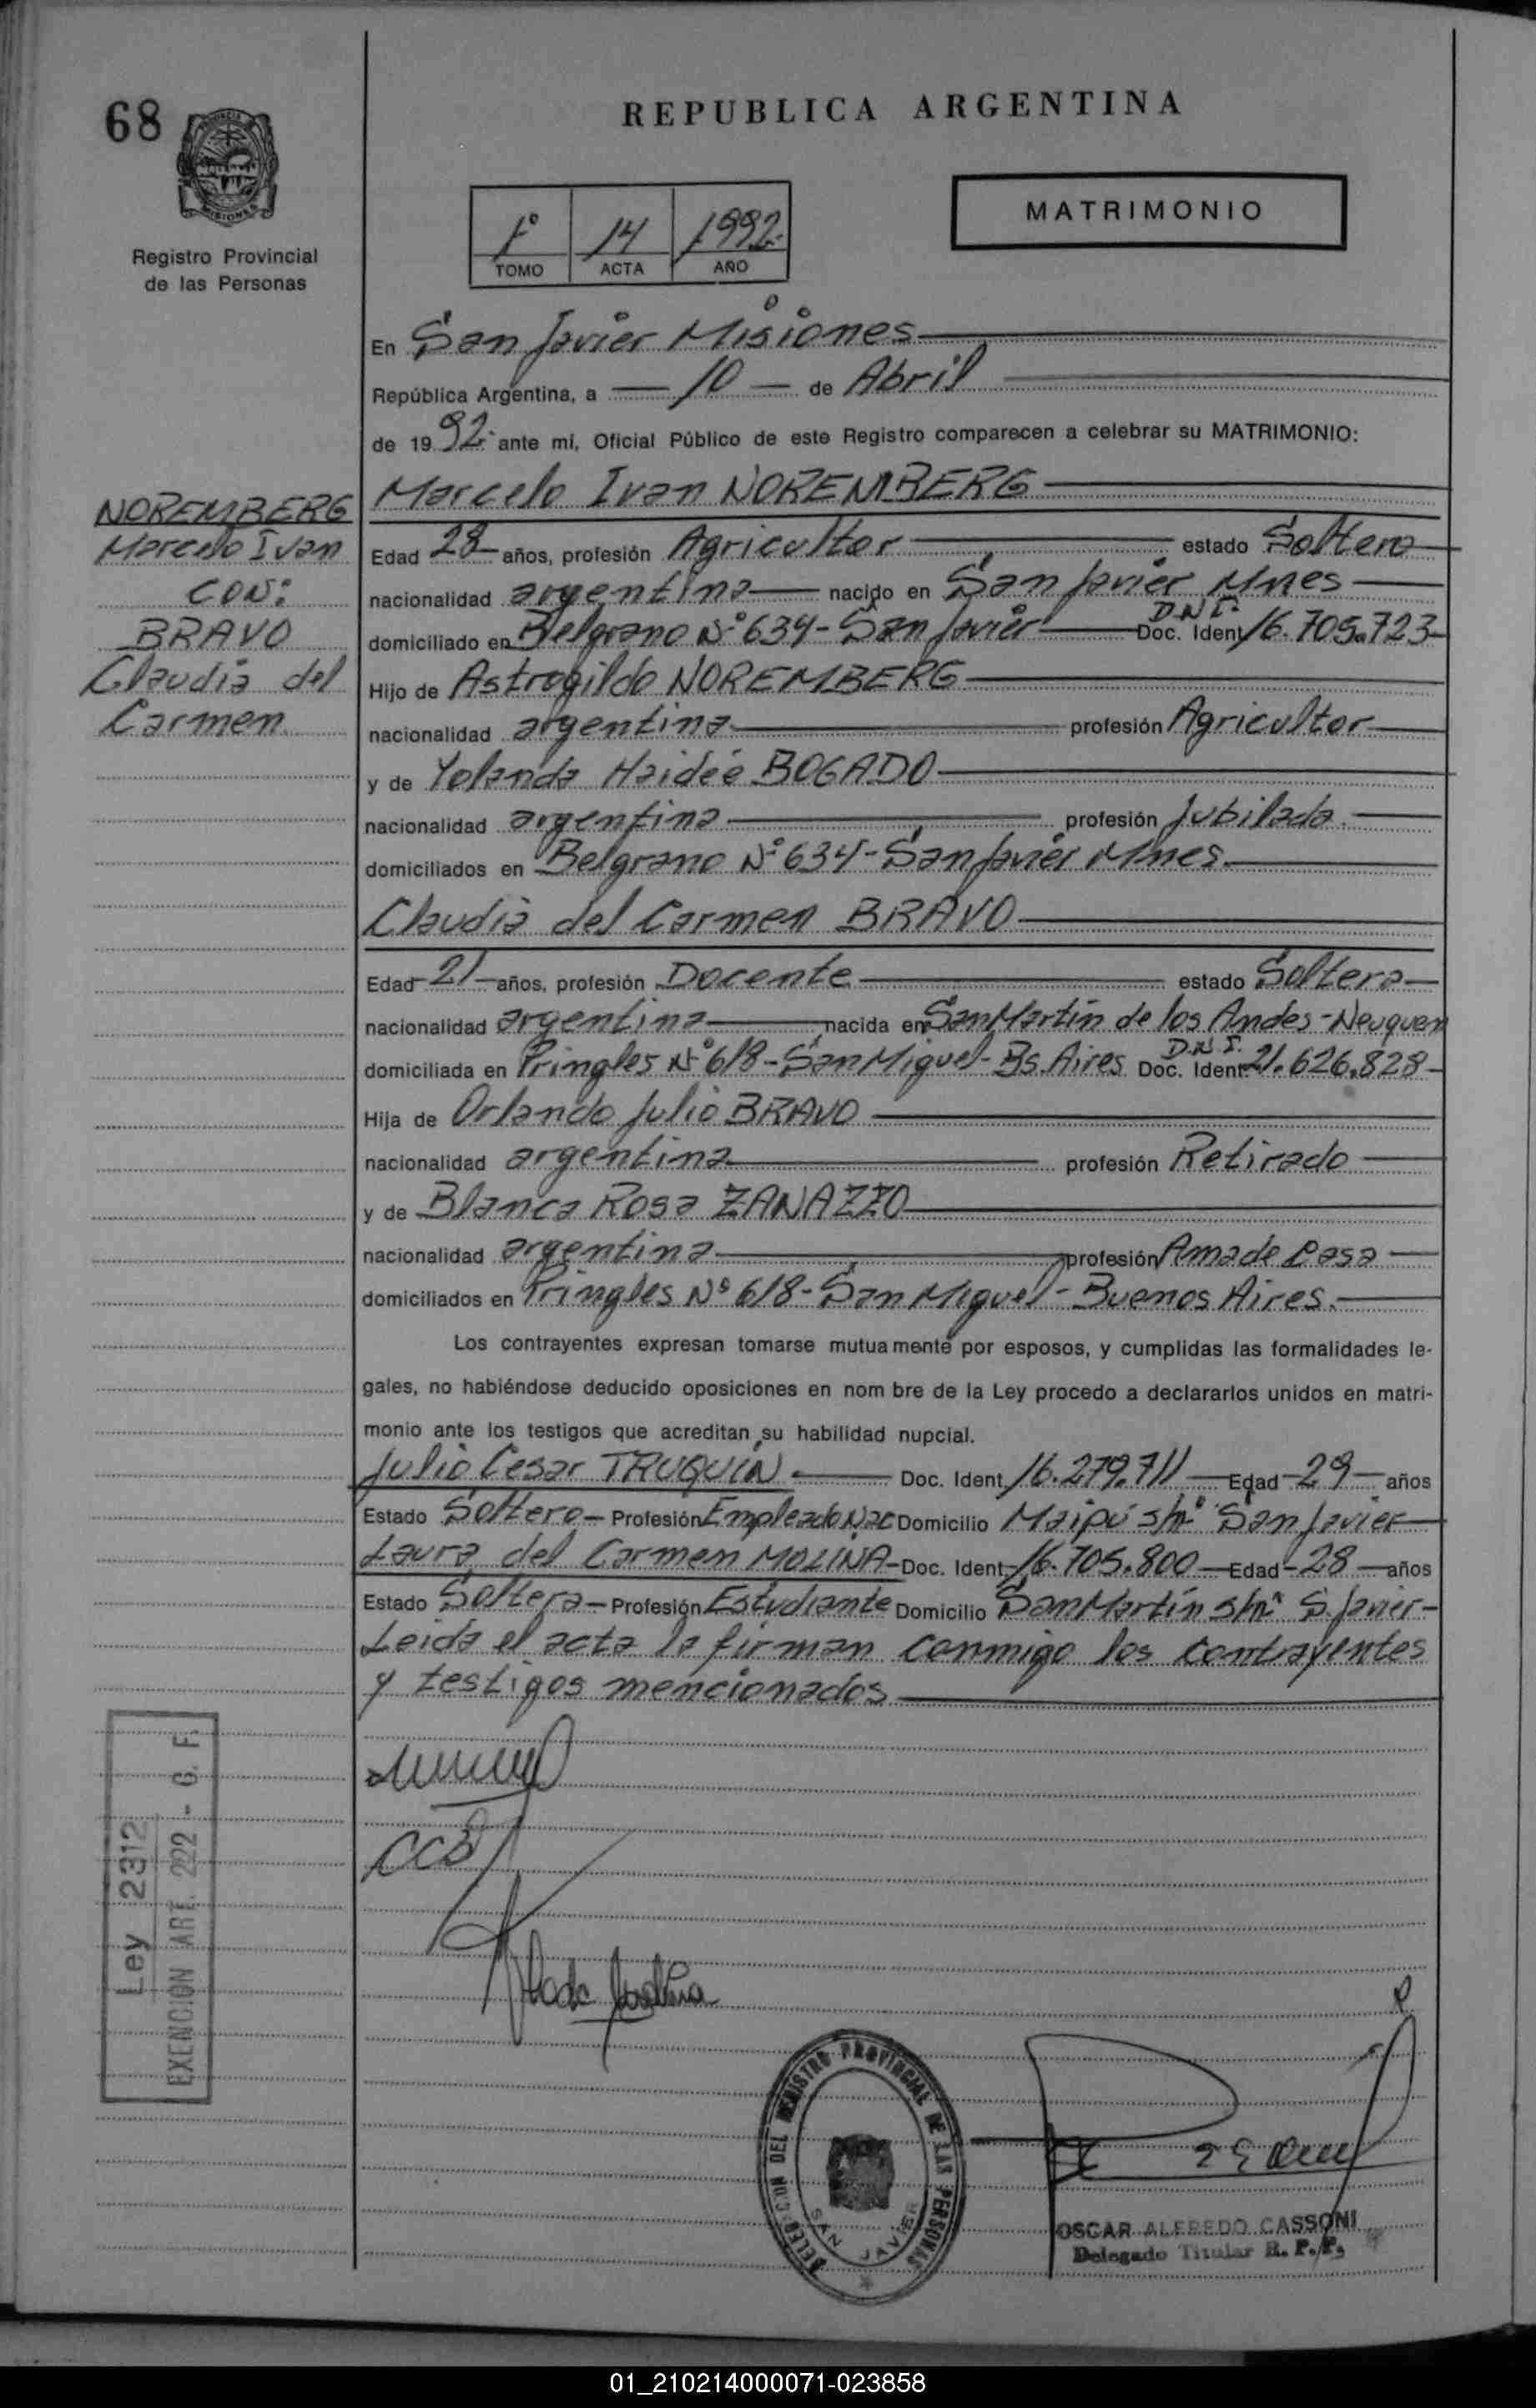 68
REPUBLICA ARGENTINA
MISIONES
Registro Provincial
de las Personas
1º 14 1992
TOMO ACTA AÑO
MATRIMONIO
En San Javier Misiones
República Argentina, a 10 de Abril
de 1992 ante mi, Oficial Público de este Registro comparecen a celebrar su MATRIMONIO:
NOREMBERG
Marcelo Ivan
CON:
BRAVO
Claudia del
Carmen
Marcelo Ivan NOREMBERG
Edad 28 años, profesión Agricultor estado Soltero
nacionalidad argentina nacido en San Javier Mnes
domiciliado en Belgrano Nº 634 - San Javier D.N.I. Doc. Ident 16.705.723
Hijo de Astrogildo NOREMBERG
nacionalidad argentina profesión Agricultor
y de Yolanda Haidée BOGADO
nacionalidad argentina profesión Jubilada.
domiciliados en Belgrano Nº 634 - San Javier Mnes.
Claudia del Carmen BRAVO
Edad 21 años, profesión Docente estado Soltera
nacionalidad argentina nacida en San Martín de los Andes - Neuquen
domiciliada en Pringles Nº 618 - San Miguel - Bs. Aires D.N.I. Doc. Ident 21.626.828
Hija de Orlando Julio BRAVO
nacionalidad argentina profesión Retirado
y de Blanca Rosa ZANAZZO
nacionalidad argentina profesión Ama de Casa
domiciliados en Pringles Nº 618 - San Miguel - Buenos Aires.
Los contrayentes expresan tomarse mutuamente por esposos, y cumplidas las formalidades le-
gales, no habiéndose deducido oposiciones en nom bre de la Ley procedo a declararlos unidos en matri-
monio ante los testigos que acreditan su habilidad nupcial.
Julio Cesar TRUQUIN Doc. Ident. 16.279.711 Edad 29 años
Estado Soltero Profesión Empleado Nac Domicilio Maipú s/nº San Javier
Laura del Carmen MOLINA Doc. Ident. 16.705.800 Edad 28 años
Estado Soltera Profesión Estudiante Domicilio San Martín s/nº S. Javier
Leida el acta la firman conmigo los contrayentes
y testigos mencionados
Ley 2312
EXENCION ART. 222 - G. F.
CCB
DELEGACION DEL REGISTRO PROVINCIAL DE LAS PERSONAS
SAN JAVIER
OSCAR ALFREDO CASSONI
Delegado Titular R. P. P.
01_210214000071-023858